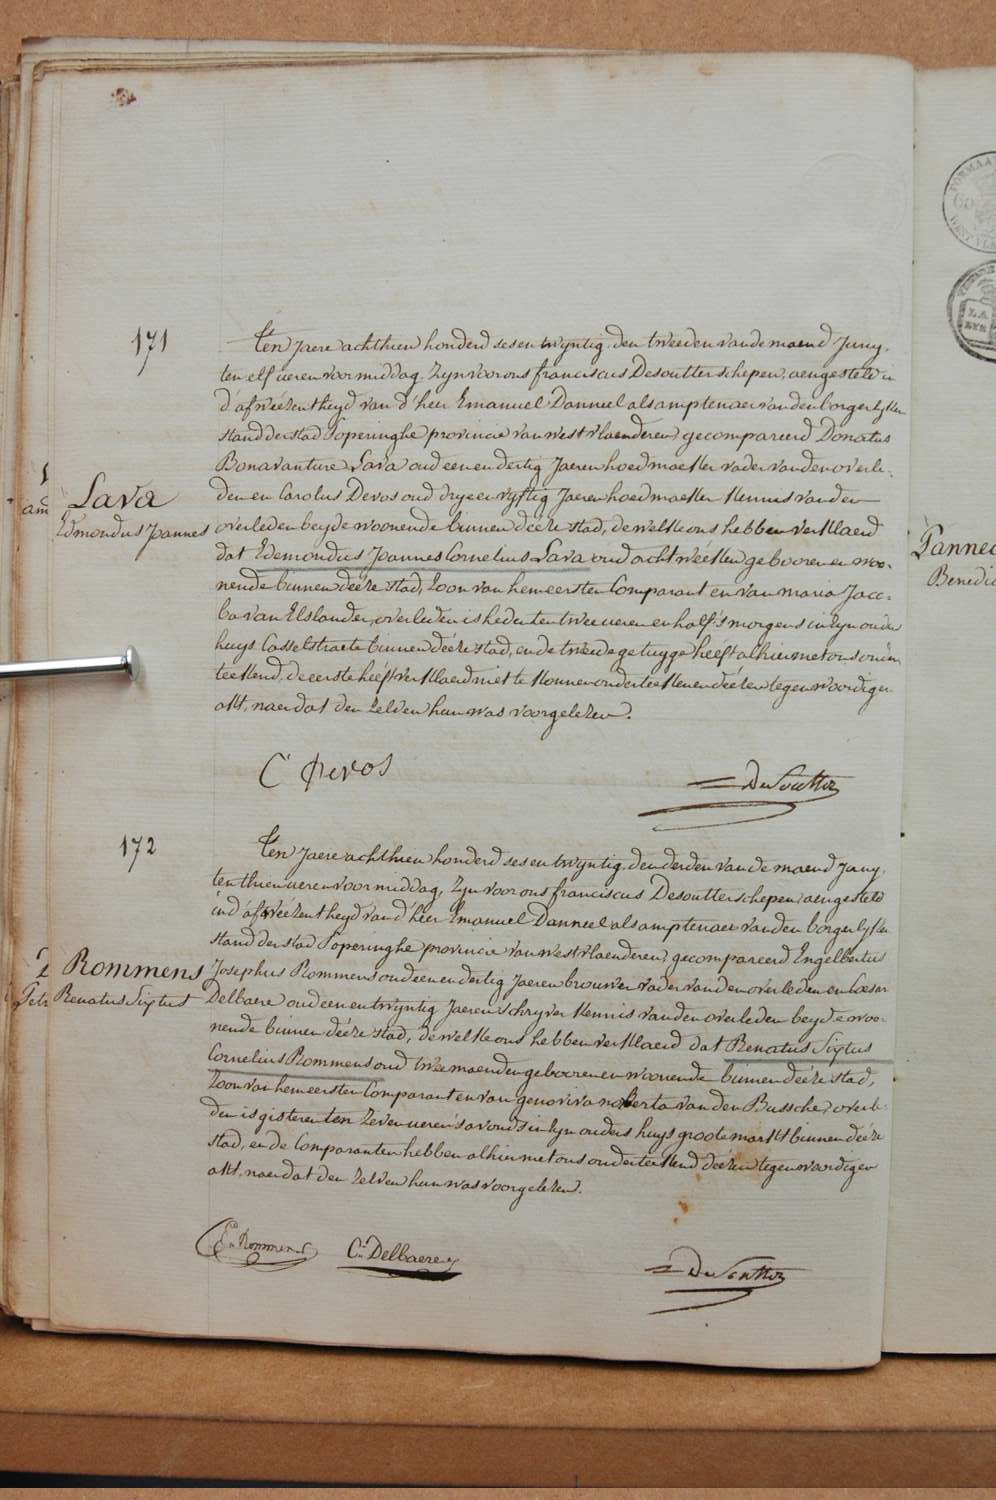 171
Lava
Edmondus Joannes
Ten Jaere achthien honderd sesentwyntig, den tweeden van de maend Juny,
ten elf ueren voormiddag, Zyn voor ons franciscus Desoutter schepen, aengesteld in
d'afweézentheyd van d'heer Emanuel Danneel als amptenaer van den borgerlyken
stand der stad Poperinghe provincie van westvlaenderen, gecompareerd Donatus
Bonavanture Lava oud eenendertig Jaeren hoedmaeker vader van den overle-
den en Carolus Devos oud dryeenvyftig Jaeren hoedmaeker kennis van den
overleden beyde woonende binnen deéze stad, de welke ons hebben verklaerd
dat Edemondus Joannes Cornelius Lava oud acht weéken gebooren en woo-
nende binnen deéze stad, Zoon van hem eersten Comparant en van maria Jaco-
ba van Elslander, overleden is heden ten twee ueren en half 's morgens in zyn ouders
huys Casselstraete binnen deéze stad, en de tweede getuyge heéft alhier met ons onder-
teekend, de eerste heéft verklaerd niet te konnen onderteekenen deézen tegenwoordigen
akt, naer dat den zelven hun was voorgelezen.
C Devos
DeSoutter
172
Rommens
Renatus Sixtus
Ten Jaere achthien honderd sesentwyntig, den derden van de maend Juny,
ten thien ueren voormiddag, Zyn voor ons franciscus Desoutter schepen, aengesteld
in d'afweézentheyd van d'heer Emanuel Danneel als amptenaer van den borgerlyken
stand der stad Poperinghe provincie van westvlaenderen, gecompareerd Engelbertus
Josephus Rommens oud eenendertig Jaeren brouwer vader van den overleden en Cæsar
Delbaere oud eenentwyntig Jaeren schryver kennis van den overleden beyde woo-
nende binnen deéze stad, de welke ons hebben verklaerd dat Renatus Sixtus
Cornelius Rommens oud twee maenden gebooren en woonende binnen deéze stad,
Zoon van hem eersten Comparant en van genoviva noberta van den Bussche, overle-
den is gisteren ten zeven ueren 's avonds in zyn ouders huys groote markt binnen deéze
stad, en de Comparanten hebben alhier met ons onderteekend deézen tegenwoordigen
akt, naer dat den zelven hun was voorgelezen.
Rommens
C. Delbaere
DeSoutter
Panneel